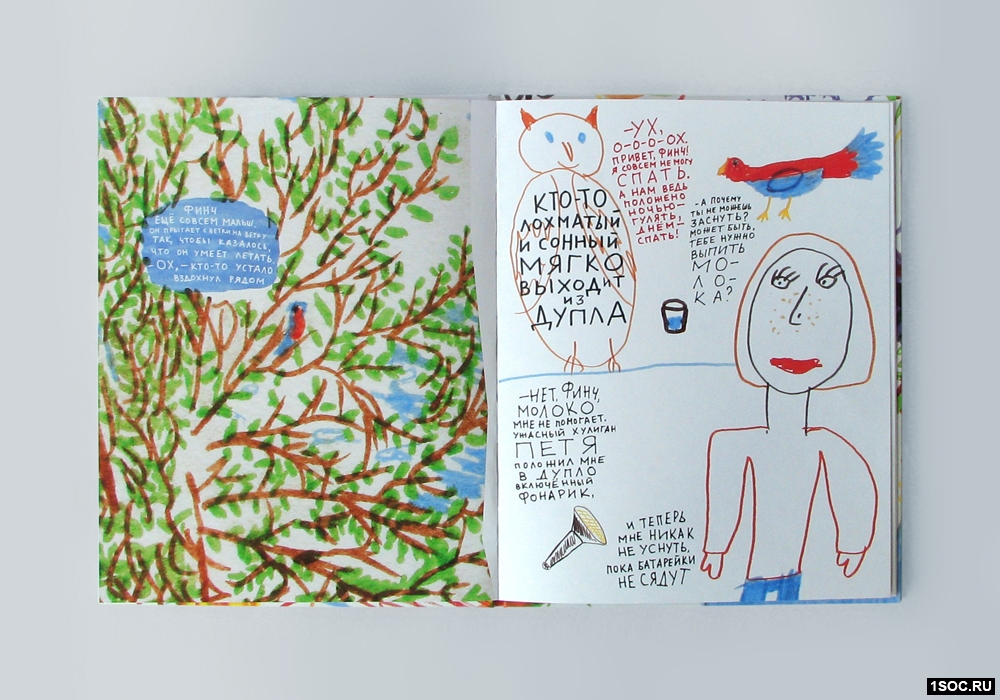 ФИНЧ
ЕЩЁ СОВСЕМ МАЛЫШ.
ОН ПРЫГАЕТ С ВЕТКИ НА ВЕТКУ
ТАК, ЧТОБЫ КАЗАЛОСЬ,
ЧТО ОН УМЕЕТ ЛЕТАТЬ.
-ОХ,-КТО-ТО УСТАЛО
ВЗДОХНУЛ РЯДОМ
КТО-ТО
ЛОХМАТЫЙ
И СОННЫЙ
МЯГКО
ВЫХОДИТ
ИЗ
ДУПЛА
-УХ,
О-О-О-ОХ.
ПРИВЕТ, ФИНЧ!
Я СОВСЕМ НЕ МОГУ
СПАТЬ.
А НАМ ВЕДЬ
ПОЛОЖЕНО
НОЧЬЮ-
ГУЛЯТЬ,
ДНЁМ-
СПАТЬ!
-А ПОЧЕМУ
ТЫ НЕ МОЖЕШЬ
ЗАСНУТЬ?
МОЖЕТ БЫТЬ,
ТЕБЕ НУЖНО
ВЫПИТЬ
МО-
ЛО-
КА?
-НЕТ, ФИНЧ,
МОЛОКО
МНЕ НЕ ПОМОГАЕТ.
УЖАСНЫЙ ХУЛИГАН
ПЕТЯ
ПОЛОЖИЛ МНЕ
В ДУПЛО
ВКЛЮЧЁННЫЙ
ФОНАРИК,
И ТЕПЕРЬ
МНЕ НИКАК
НЕ УСНУТЬ,
ПОКА БАТАРЕЙКИ
НЕ СЯДУТ
1SOC.RU